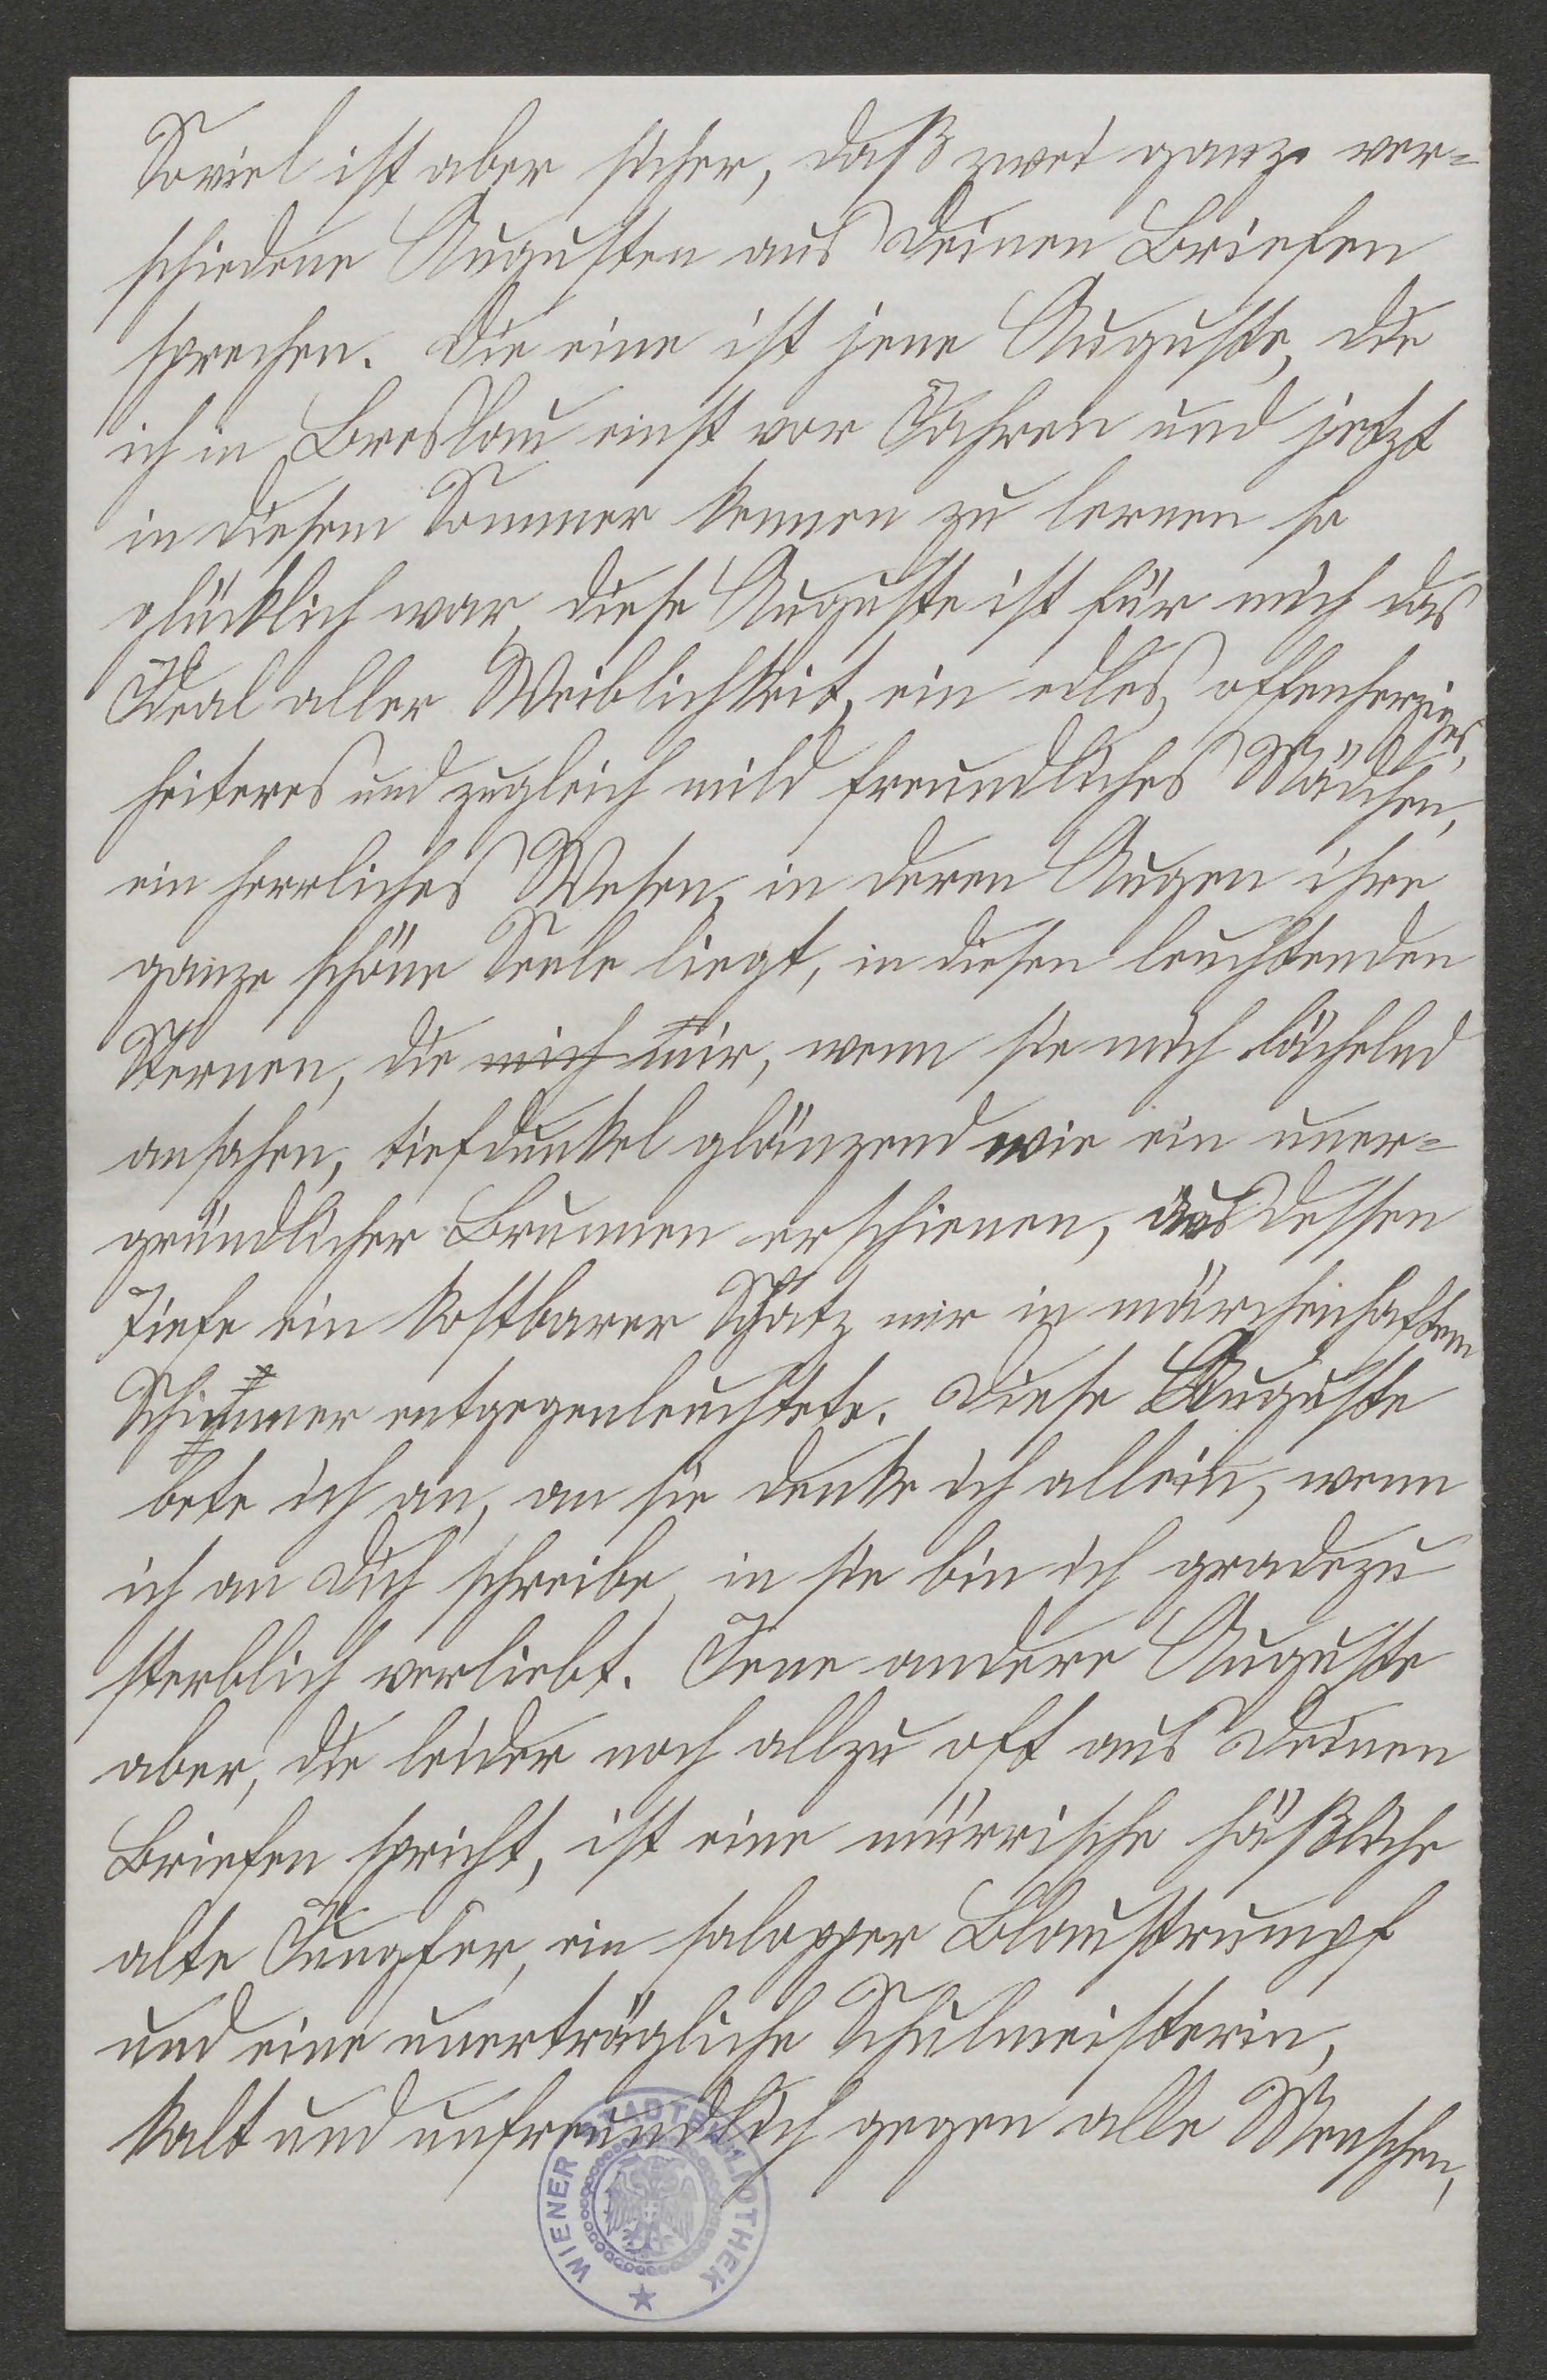 Soviel ist aber sicher, daß zwei ganz ver=
schiedene Augusten aus Deinen Briefen
sprechen. Die eine ist jene Auguste, die
ich in Breslau einst vor Jahren und jetzt
in diesem Sommer kennen zu lernen so
glücklich war, diese Auguste ist für mich das
Ideal aller Weiblichkeit, ein edles, offenherziges,
heiteres und zugleich mild freundliches Mädchen,
ein herrliches Wesen, in deren Augen ihre
ganze schöne Seele liegt, in diesen leuchtenden
Sternen, die mich mir, wenn sie mich lächelnd
ansahen, tiefdunkel glänzend wie ein uner=
gründlicher Brunnen erschienen, aus dessen
Tiefe ein kostbarer Schatz mir in märchenhaftem
Schimmer entgegenleuchtete. Diese Auguste
bete ich an, an sie denke ich allein, wenn
ich an Dich schreibe, in sie bin ich gradezu
sterblich verliebt. Jene andere Auguste
aber, die leider noch allzu oft aus Deinen
Briefen spricht, ist eine mürrische häßliche
alte Jungfer, ein salopper Blaustrumpf
und eine unerträgliche Schulmeisterin,
kalt und unfreundlich gegen alle Menschen,
WIENER STADTBIBLIOTHEK